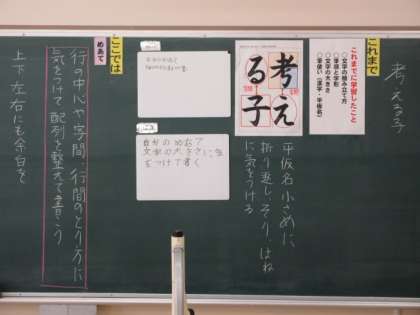 考える子
これまで
これまでに学習したこと
○文字の組み立て方
○筆順と字形
○文字の大きさ
○筆使い(漢字・平仮名)
考え
る子
平仮名小さめに、
折り返し、そり、はね
に気をつける
自分のめあて
文字の大きさに気
をつけて書く
ここでは
めあて
行の中心や字間、行間のとり方に
気をつけて配列を整えて書こう
上下左右にも余白を